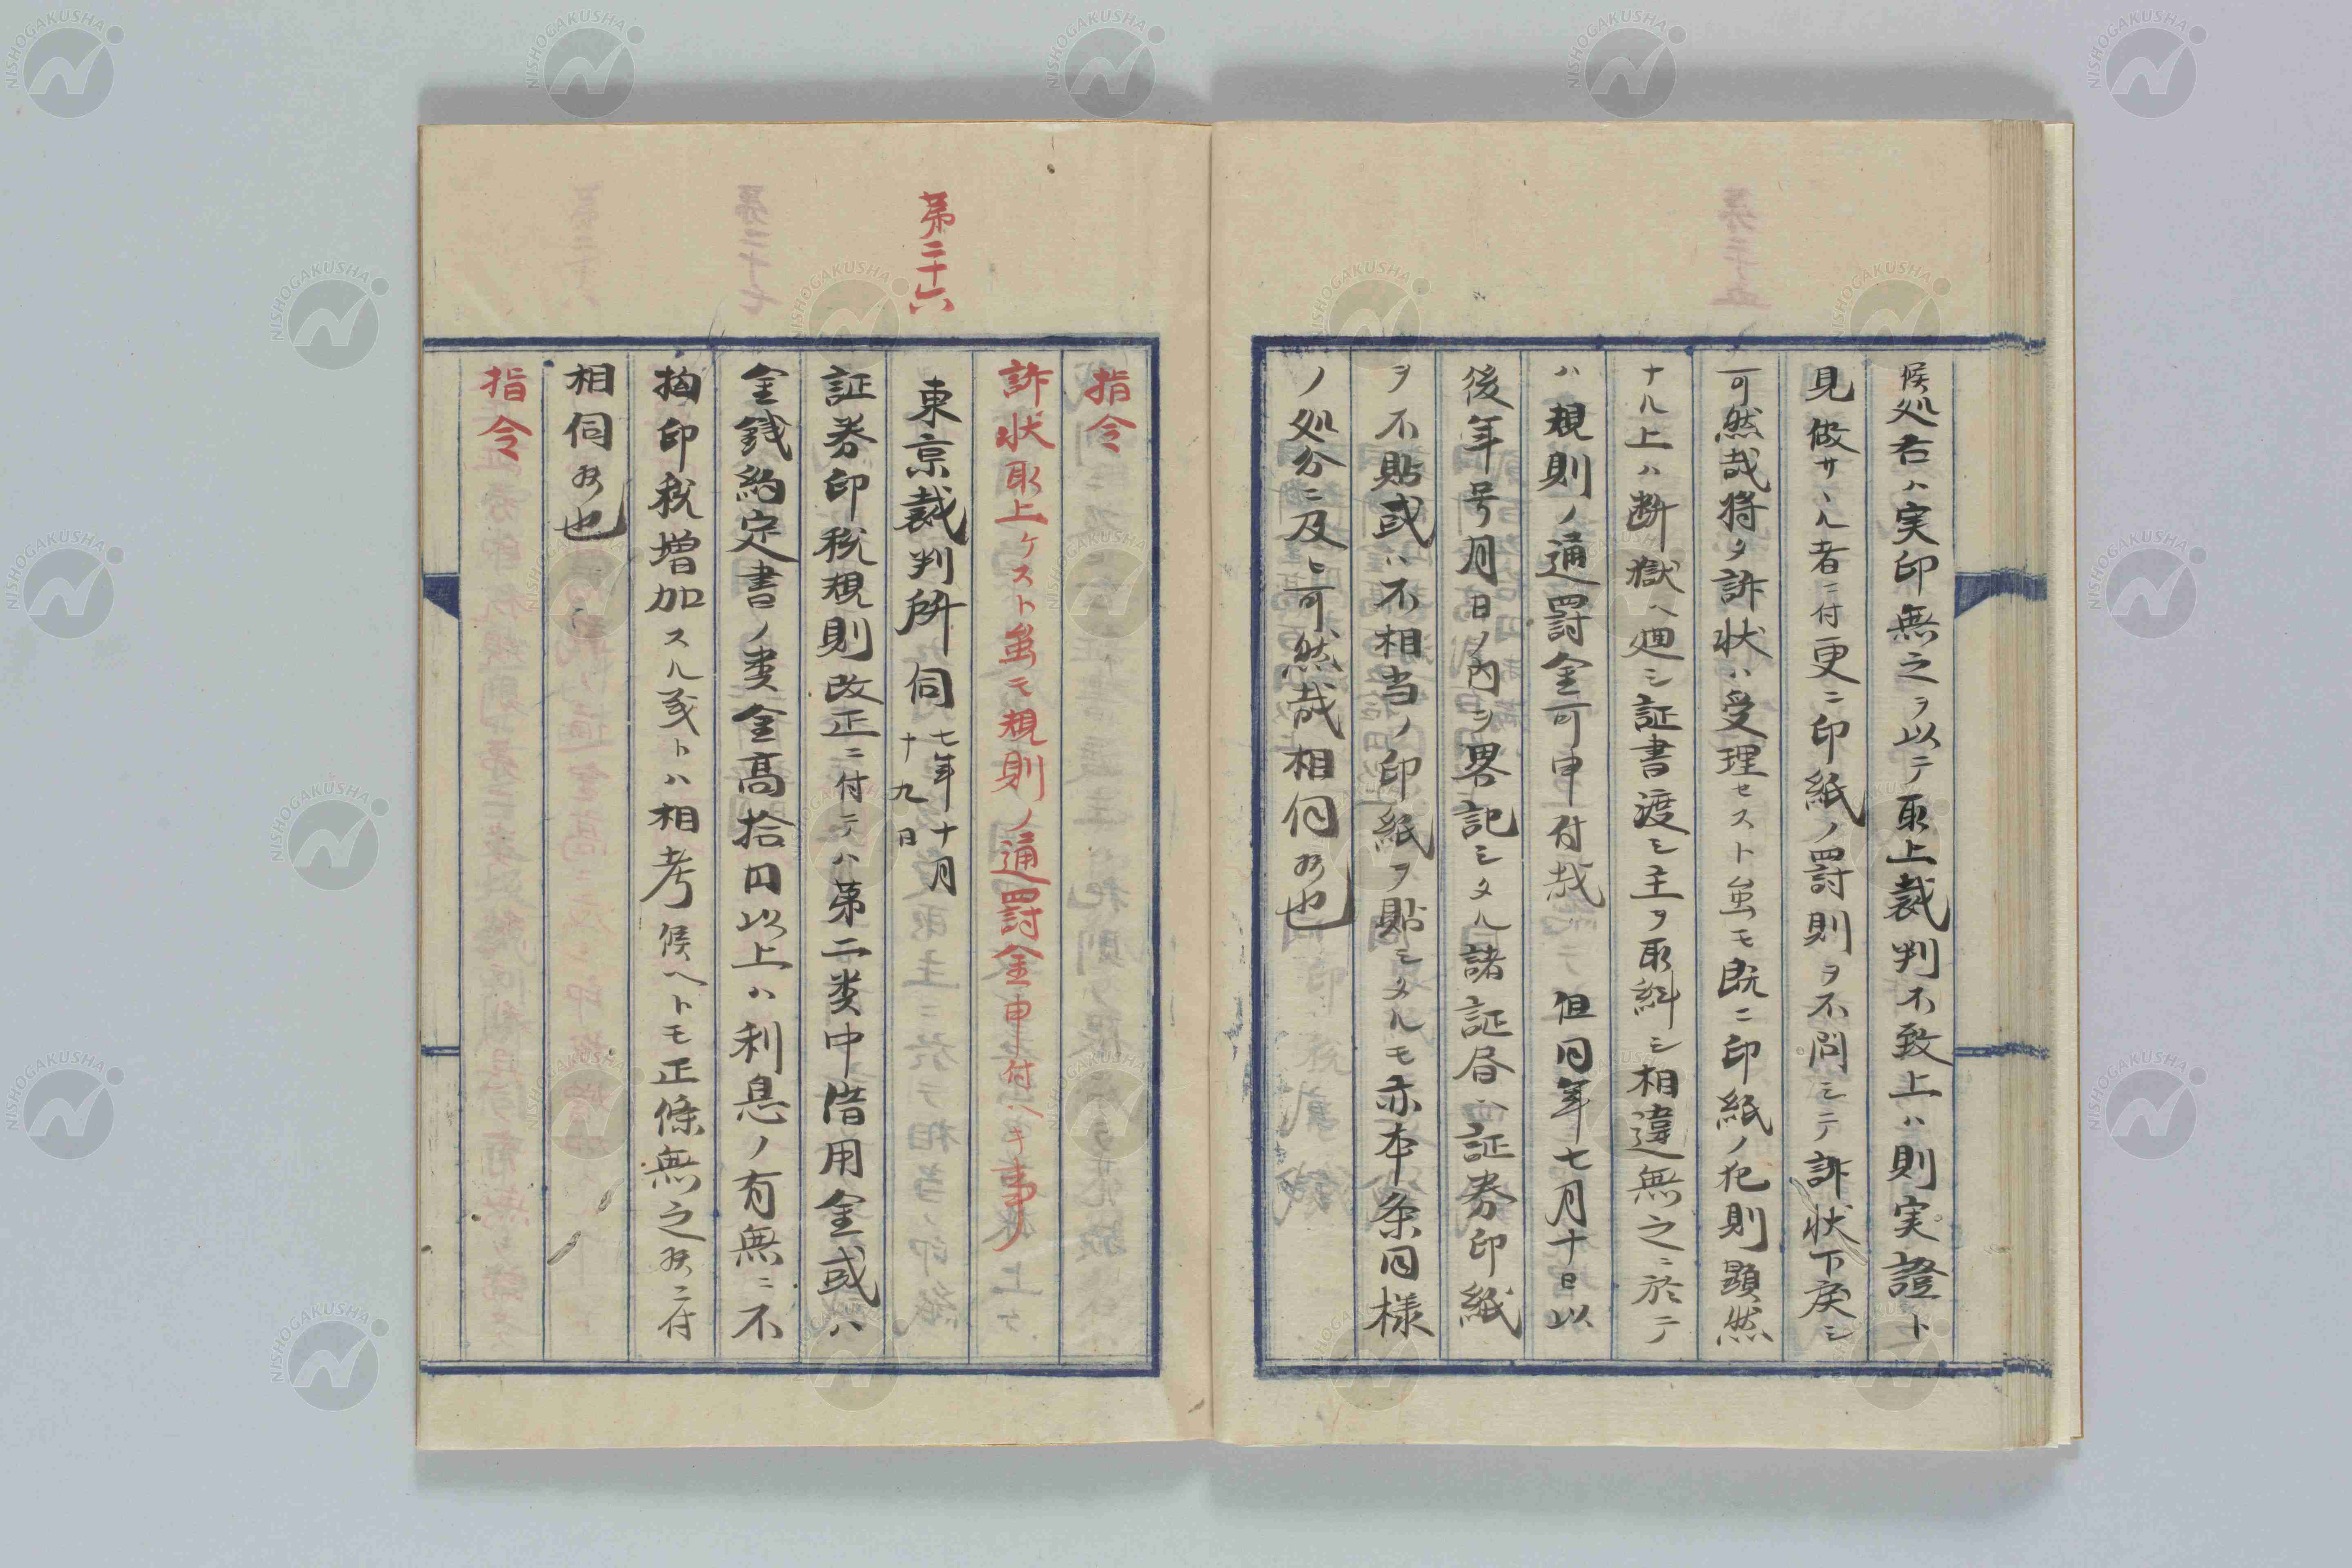 候処右ハ実印無之ヲ以テ取上裁判不致上ハ則実證ト
見做サヽル者ニ付更ニ印紙ノ罰則ヲ不問シテ訴状下戻シ
可然哉将タ訴状ハ受理セスト虽モ既ニ印紙ノ犯則顕然
ナル上ハ断獄ヘ廻シ証書渡シ主ヲ取糾シ相違無之ニ於テ
ハ規則ノ通罰金可申付哉 但同年七月十日以
後年号月日ノ内ヲ畧記シタル諸証書ヘ証券印紙
ヲ不貼或ハ不相当ノ印紙ヲ貼シタルモ亦本条同様
ノ処分ニ及ヒ可然哉相伺候也
指令
訴状取上ケスト虽モ規則ノ通罰金申付ヘキ事
第二十六
東京裁判所伺 七年十月
十九日
証券印税規則改正ニ付テハ第二类中借用金或ハ
金銭約定書ノ类金高拾円以上ハ利息ノ有無ニ不
拘印税増加スル義トハ相考候ヘトモ正條無之候ニ付
相伺候也
指令
NISHOGAKUSHA